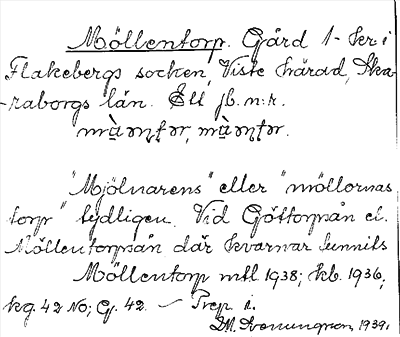 Möllentorp. Gård 1- kr. i
Flakebergs socken, Viste härad, Ska-
raborgs län. Ett jb. n:r.
"Mjölnarens" eller "möllornas
torp" tydligen. Vid Göttorpsån el.
Möllentorpsån där kvarnar funnits
Möllentorp mtl. 1938; kb. 1936,
kg. 42 NO; G. 42. — Prep. i.
1939.